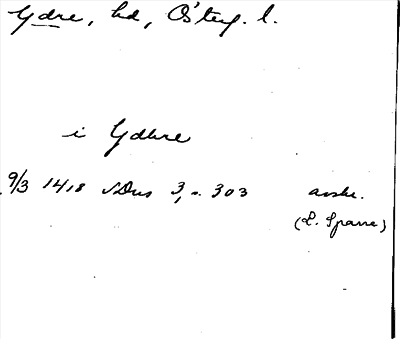 Ydre, hd, Östерg. l.
i Ydhre
9/3 1418 SDns 3, s. 303 avskr.
(L. Sparre)